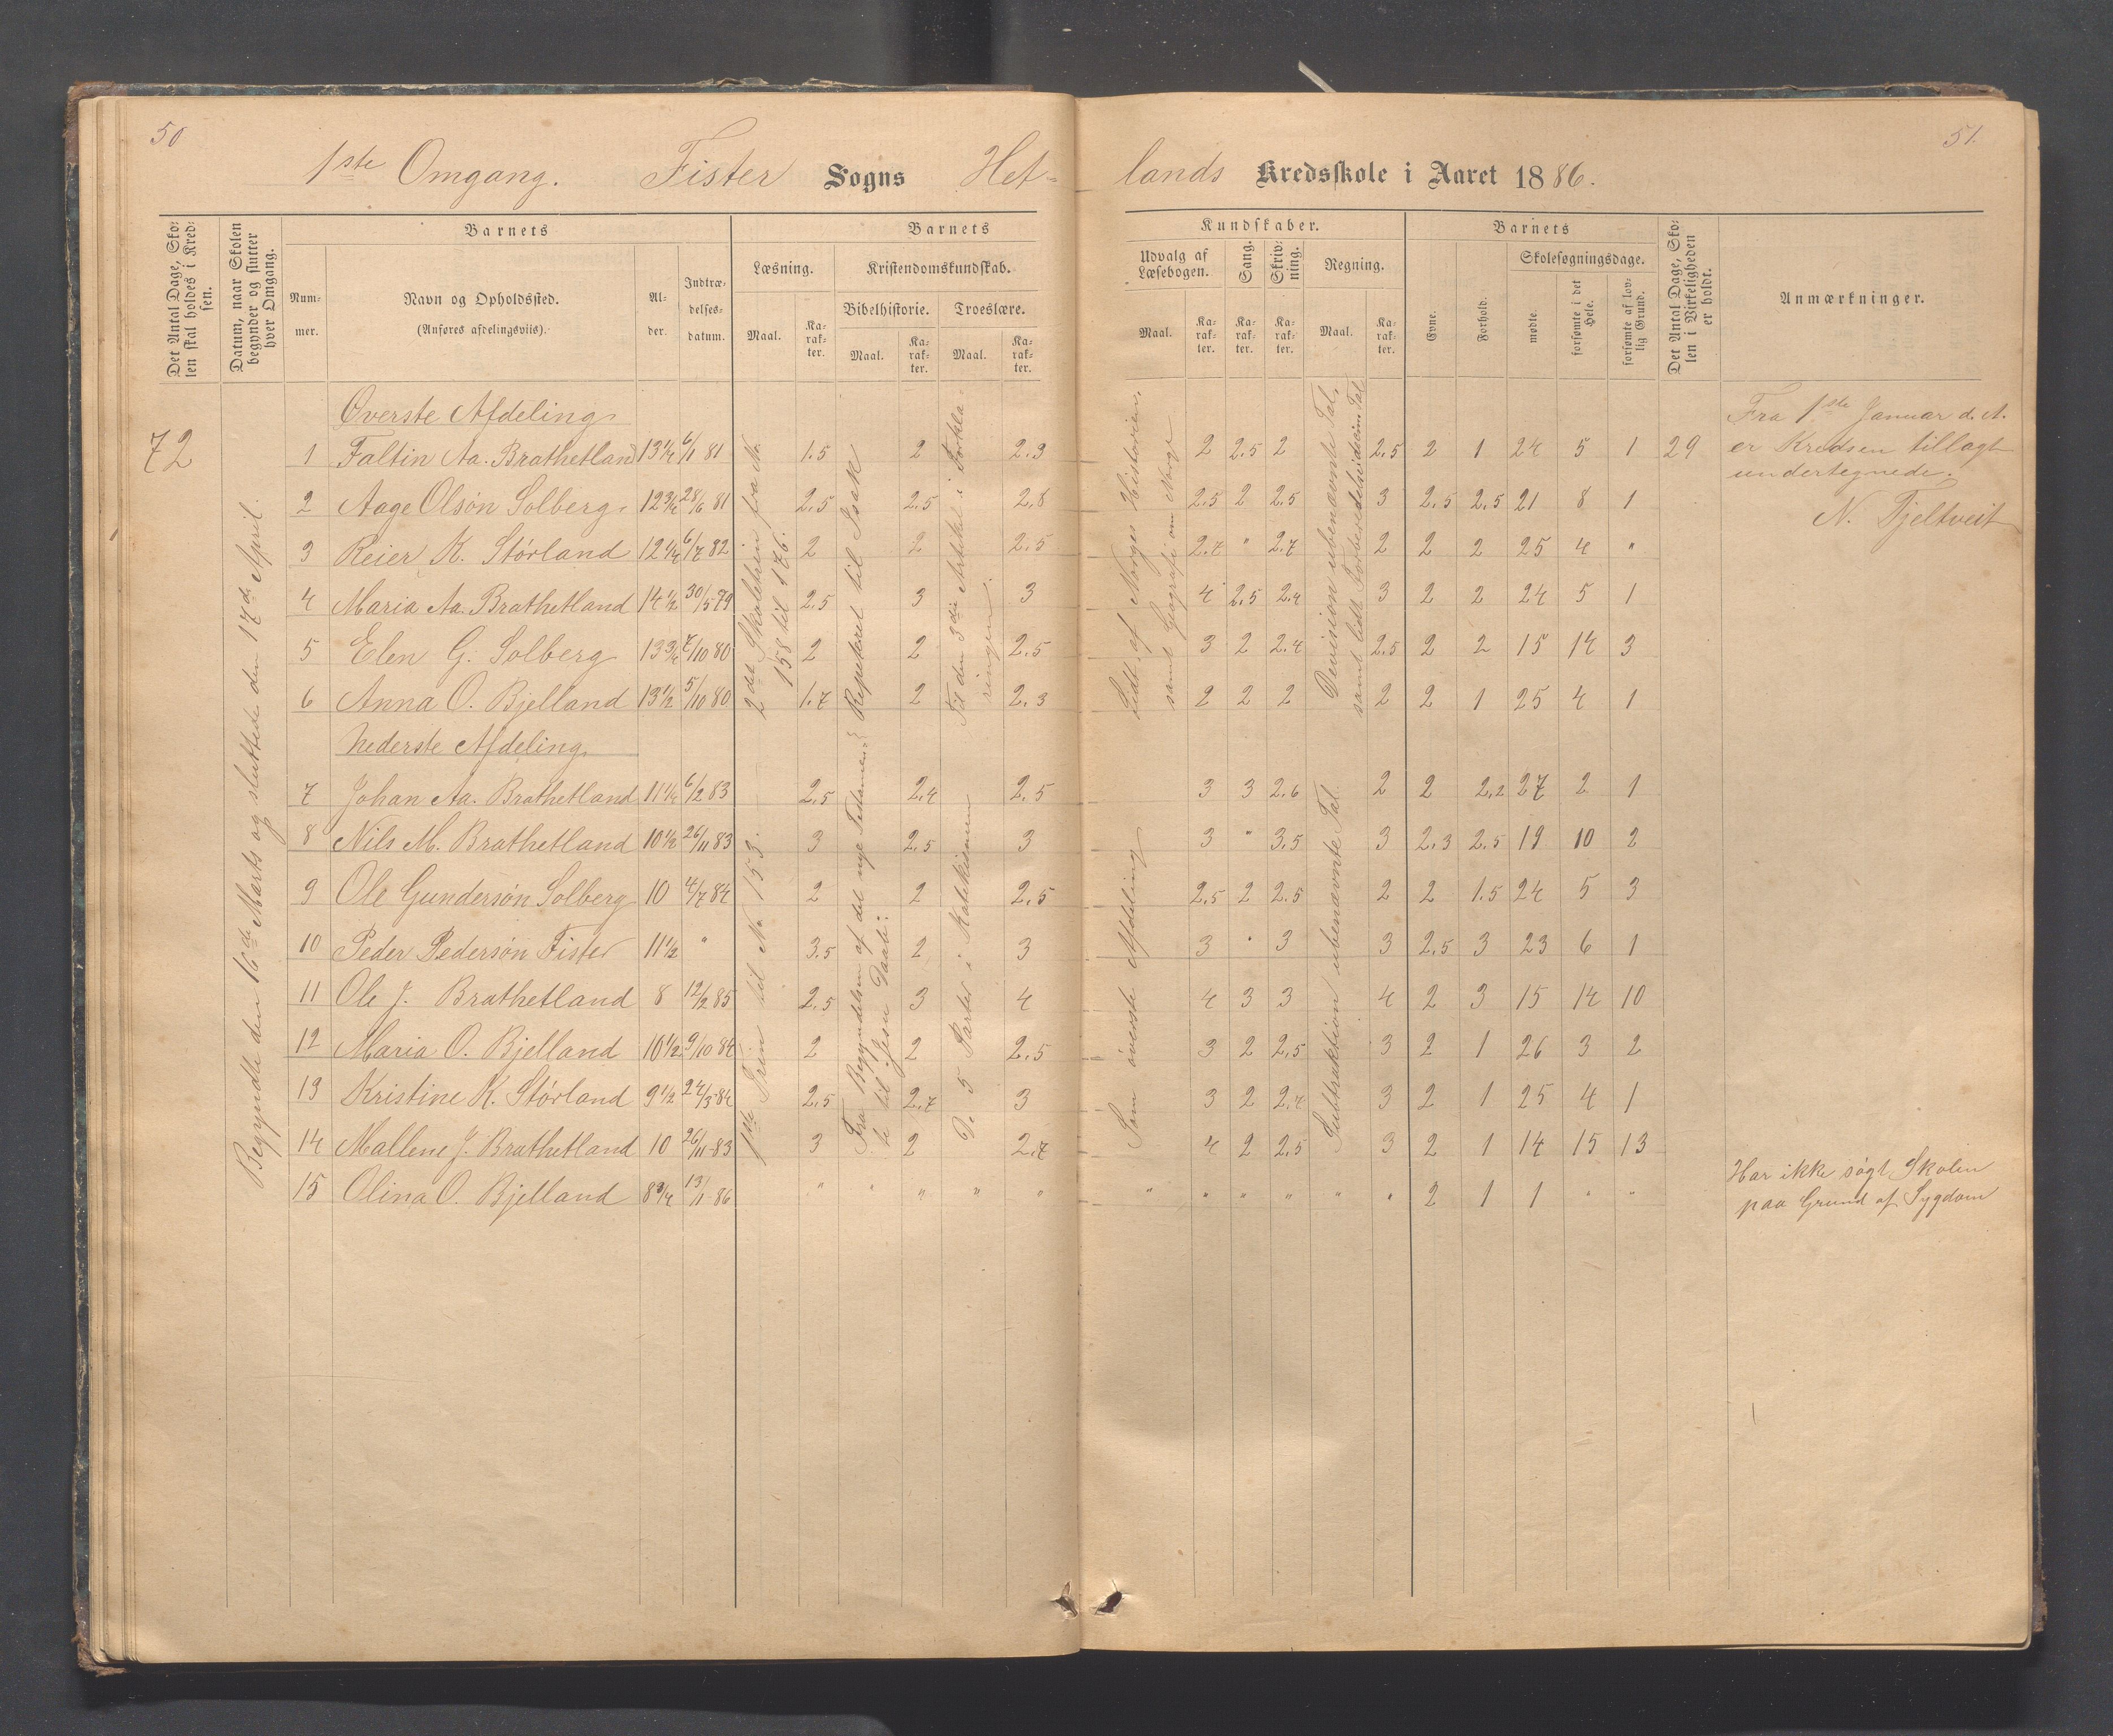 50
51.
1ste Omgang. Fister Sogns Hetlands Kredsskole i Aaret 1886.
Det Antal Dage, Skolen skal holdes i Kredsen.
Datum, naar Skolen begynder og slutter hver Omgang.
Barnets
Nummer.
Navn og Opholdssted.
(Anføres afdelingsviis).
Alder.
Indtrædelsesdatum.
Barnets Kundskaber.
Læsning.
Maal.
Karakter.
Kristendomskundskab.
Bibelhistorie.
Maal.
Karakter.
Troeslære.
Maal.
Karakter.
Udvalg af Læsebogen.
Maal.
Karakter.
Sang.
Karakter.
Skrivning.
Karakter.
Regning.
Maal.
Karakter.
Barnets
Evne.
Forhold.
Skolesøgningsdage.
mødte.
forsømte i det Hele.
forsømte af lovlig Grund.
Det Antal Dage, Skolen i Virkeligheden er holdt.
Anmærkninger.
72
Begyndte den 16de Marts og sluttede den 17de April.
Øverste Afdeling
1 Faltin Aa. Brathetland 13 1/4 6/1 81 1.5 2 2.3 2 2.5 2 2.5 2 1 24 5 1 29
2 Aage Olsøn Solberg. 12 3/4 28/6 81 2.5 2.5 2.8 2.5 2 2.5 3 2.5 2.5 21 8 1
3 Reier K. Størland 12 1/4 6/7 82 2 2 2.5 2.7 " 2.7 2 2 2 25 4 "
4 Maria Aa. Brathetland 14 1/2 30/5 79 2.5 3 3 4 2.5 2.4 3 2 2 24 5 1
5 Elen G. Solberg 13 3/4 7/10 80 2 2 2.5 3 2 2.4 2.5 2 2 15 14 3
6 Anna O. Bjelland 13 1/2 5/10 80 1.7 2 2.3 2 2 2 2 2 1 25 4 1
2det Skoletrin fra No 158 til 176.
Repeteret til Isak
Til den 3die Artikel i Forklaringen.
Lidt af Norges Historien, samt Geografi om Norge
Devision ubenævnte Tal, samt lidt Forberedelse
Nederste Afdeling
7 Johan Aa. Brathetland 11 1/4 6/2 83 2.5 2.4 2.5 3 3 2.6 2 2 2.2 27 2 1
8 Nils M. Brathetland 10 1/2 26/11 83 3 2.5 3 3 " 3.5 3 2.3 2.5 19 10 2
9 Ole Gundersøn Solberg 10 4/7 84 2 2 2.5 2.5 2 2.5 2 2 1.5 24 5 3
10 Peder Pedersøn Fister 11 1/2 " 3.5 2 3 3 " 3 3 2.5 3 23 6 1
11 Ole J. Brathetland 8 12/2 85 2.5 3 4 4 3 3 4 2 3 15 14 10
12 Maria O. Bjelland 10 1/2 9/10 84 2 2 2.5 3 2 2.5 3 2 1 26 3 2
13 Kristine K. Størland 9 1/2 24/3 84 2.5 2.7 3 3 2 2.4 3 2 1 25 4 1
14 Mallene J. Brathetland 10 26/11 83 3 2 2.7 4 2 2.5 3 2 1 14 15 13
15 Olina O. Bjelland 8 3/4 13/11 86 " " " " " " " " " " " 2 1 1 " "
1ste Trin til No 153.
Fra Begyndelsen af det nye Testamente til Jesu Daab:
De 5 Parter i Katekismen
Som øverste Afdeling
Subtraktion ubenævnte Tal.
Fra 1ste Januar d. A.
er Kredsen tillagt
undertegnede.
N. Tjeltveit
Har ikke søgt Skolen
paa Grund af Sygdom